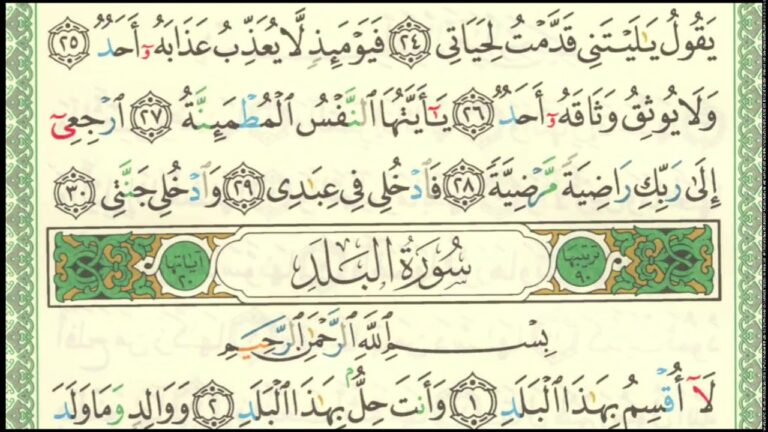 يَقُولُ يَٰلَيْتَنِى قَدَّمْتُ لِحَيَاتِى ٢٤ فَيَوْمَئِذٍ لَّا يُعَذِّبُ عَذَابَهُۥٓ أَحَدٌ ٢٥
وَلَا يُوثِقُ وَثَاقَهُۥٓ أَحَدٌ ٢٦ يَٰٓأَيَّتُهَا ٱلنَّفْسُ ٱلْمُطْمَئِنَّةُ ٢٧ ٱرْجِعِىٓ
إِلَىٰ رَبِّكِ رَاضِيَةً مَّرْضِيَّةً ٢٨ فَٱدْخُلِى فِى عِبَٰدِى ٢٩ وَٱدْخُلِى جَنَّتِى ٣٠
ترتيبها ٩٠ سُورَةُ البَلَدِ آياتها ٢٠
بِسْمِ ٱللَّهِ ٱلرَّحْمَٰنِ ٱلرَّحِيمِ
لَآ أُقْسِمُ بِهَٰذَا ٱلْبَلَدِ ١ وَأَنتَ حِلٌّۢ بِهَٰذَا ٱلْبَلَدِ ٢ وَوَالِدٍ وَمَا وَلَدَ